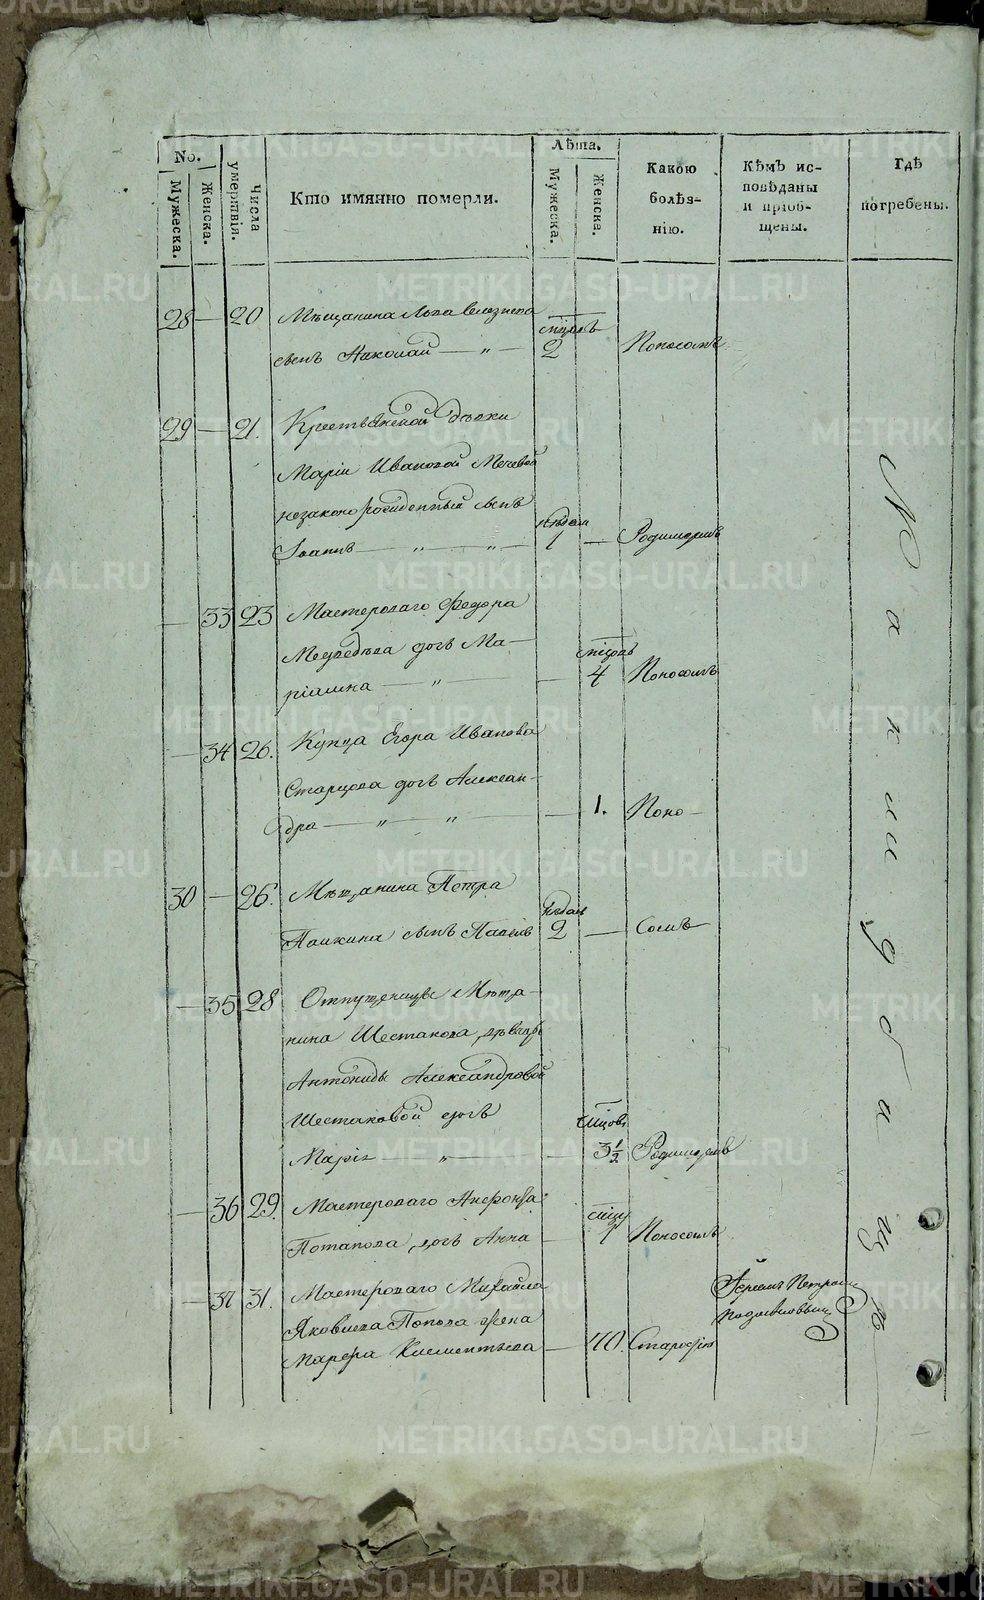 No.
Мужеска.
Женска.
Числа умертвія.
Кто имянно померли.
Лѣта.
Мужеска.
Женска.
Какою болѣз-
нію.
Кѣмъ ис-
повѣданы
и пріоб-
щены.
Гдѣ
погребены.
28 — 20 Мѣщанина Льва
сынъ Николай — „ — 2 Поносомъ
29 — 21. Крестьянской дѣвки
Маріи Ивановой
незаконорожденный сынъ
Іоаннъ — „ — „ — недѣл 1 — Родимцомъ
— 33 23 Мастероваго Федора
Медведева дочь Ма-
ріамна — „ — — 4 Поносомъ
— 34 26. Купца Егора Иванова
Старцова дочь Алексан-
дра — „ — „ — — 1. Поно —
30 — 26. Мѣщанина Петра
сынъ Павелъ недѣль 2 —
— 35 28 Отпущеницы Мѣща-
нина Шестакова,
Антониды Александровой
Шестаковой дочь
Марія — „ — — 3½ Родимцомъ
— 36 29. Мастероваго
Потапова дочь Анна — 1 Поносомъ
— 37 31. Мастероваго Михайла
Яковлева Попова жена
Марфа Клементьева — 40. Старостію
Іереемъ Петромъ
На кладбищѣ
METRIKI.GASO-URAL.RU